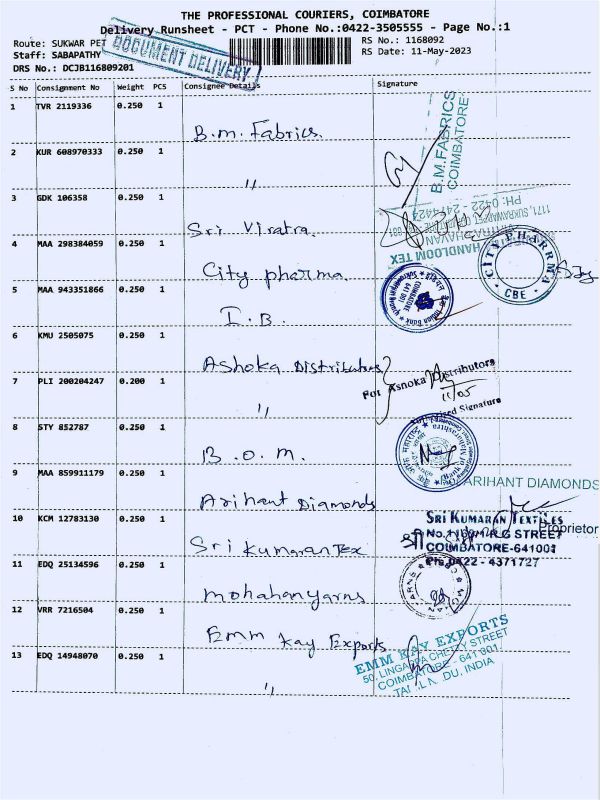 THE PROFESSIONAL COURIERS, COIMBATORE
Delivery Runsheet - PCT - Phone No.:0422-3505555 - Page No.:1
Route: SUKWAR PET
RS No.: 1168092
Staff: SABAPATHY
RS Date: 11-May-2023
DRS No.: DCJB116809201
DOCUMENT DELIVERY
S No Consignment No Weight PCS Consignee Details Signature
1 TVR 2119336 0.250 1 B.m. Fabrics.
B.M.FABRICS
COIMBATORE
2 KUR 608970333 0.250 1 "
3 GDK 106358 0.250 1 Sri Viratra.
PH: 0422 - 2474424
HANDLOOM TEX
4 MAA 298384059 0.250 1 City pharma.
CITY PHARRMA
CBE
5 MAA 943351866 0.250 1 I.B.
COIMBATORE
641 001
6 KMU 2505075 0.250 1 Ashoka Distributors
For Ashoka Distributors
11/05
Signature
7 PLI 200204247 0.200 1 "
8 STY 852787 0.250 1 B.O.M.
9 MAA 859911179 0.250 1 Arihant Diamonds
ARIHANT DIAMONDS
Proprietor
10 KCM 12783130 0.250 1 Sri Kumaran Tex
SRI KUMARAN TEXTILES
STREET
COIMBATORE-641001
Ph:0422 - 4371727
11 EDQ 25134596 0.250 1 mohahanyarns
12 VRR 7216504 0.250 1 Emm Kay Exports
EMM KAY EXPORTS
50, LINGAPPA CHETTY STREET
COIMBATORE - 641 001.
TAMILNADU, INDIA
13 EDQ 14948070 0.250 1 "